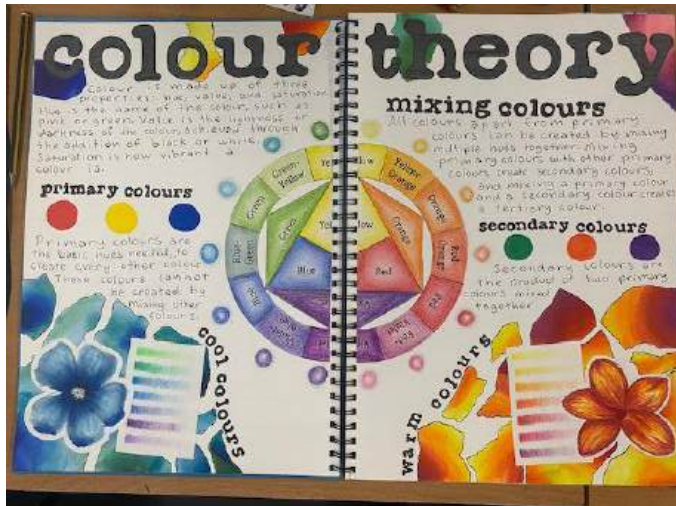 colour theory
Colour is made up of three
properties: hue, value, and saturation
Hue is the name of the colour, such as
pink or green. Value is the lightness or
darkness of the colour, achieved through
the addition of black or white.
Saturation is how vibrant a
colour is.
primary colours
Primary colours are
the basic hues needed to
create every other colour.
These colours cannot
be created by
mixing other
colours.
cool colours
mixing colours
All colours apart from primary
colours can be created by mixing
multiple hues together. mixing
primary colours with other primary
colours create secondary colours,
and mixing a primary colour
and a secondary colour creates
a tertiary colour.
secondary colours
Secondary colours are
the product of two primary
colours mixed
together
warm colours
Green-
Yellow
Yellow
Yellow
Orange
Orange
Red
Orange
Red
Green
Blue-
Green
Blue
Green
Orange
Blue
Red